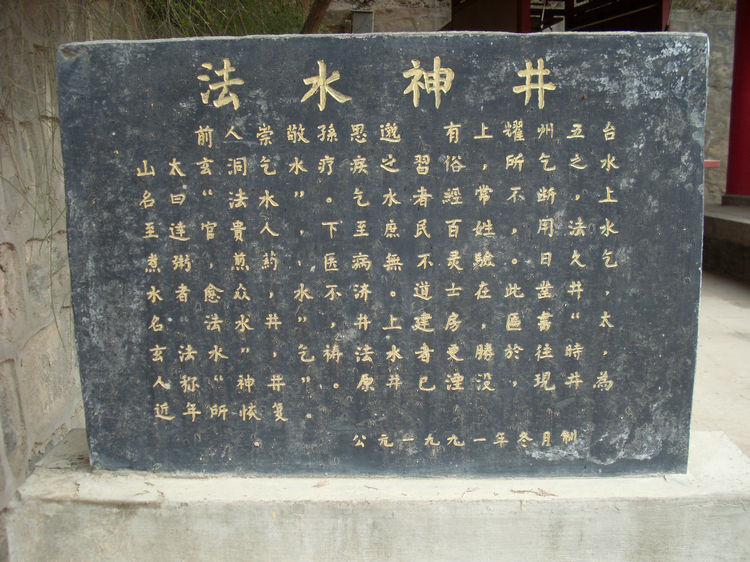 法水神井
前人崇敬孫思邈,有上耀州五台
山太玄洞乞水疗疾之習俗,所乞之水
名曰“法水”。乞水者經常不断,上
至達官貴人,下至庶民百姓,用法水
煮粥,煎药,医病無不灵驗。日久乞
水者愈众,水不济。道士在此凿井,
名“法水井”,井上建房,匾書“太
玄法水神井”。祷乞法水者更勝於往時,
人称“神井”。原井已湮没,現井為
近年所恢复。
公元一九九一年冬月制